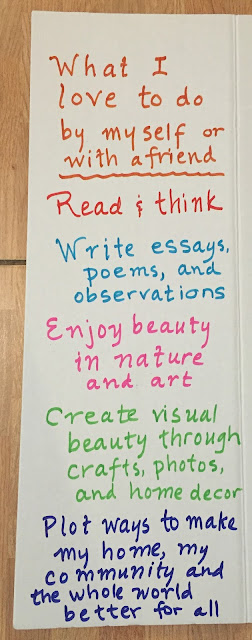 What I
love to do
by myself or
with a friend
Read & think
Write essays,
poems, and
observations
Enjoy beauty
in nature
and art
Create visual
beauty through
crafts, photos,
and home decor
Plot ways to make
my home, my
community and
the whole world
better for all